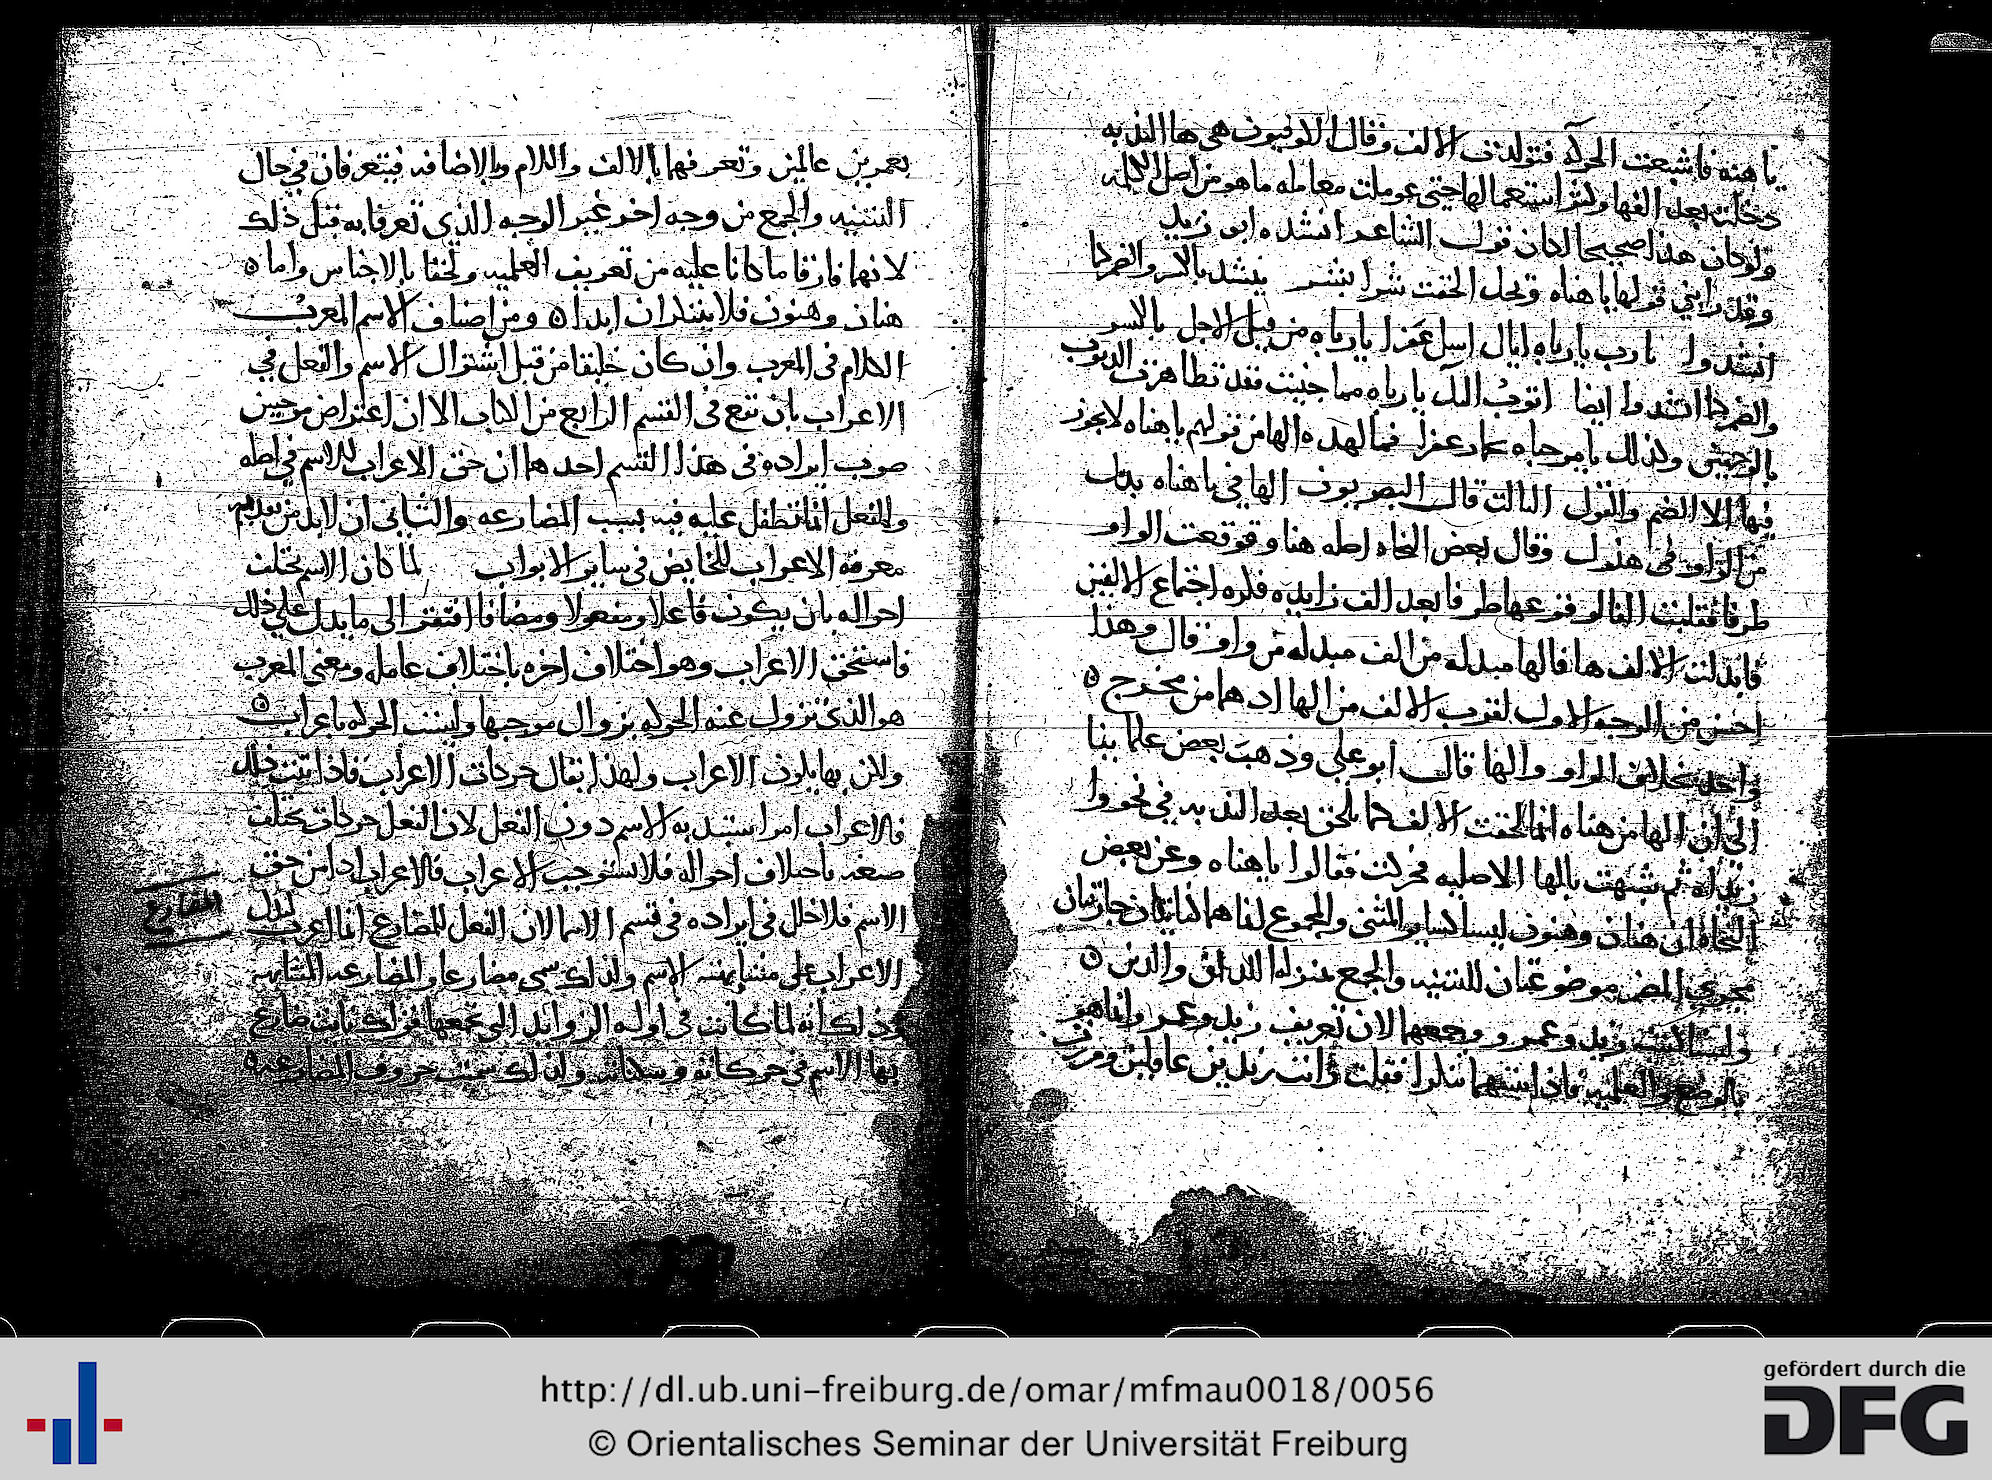 يا هنه فاشبعت الحركة فتولدت الالف وقال الكوفيون هي ها الندبه
دخلت بعد الفها وكثر استعمالها حتى عوملت معامله ما هو من اصل الكلمه
ولو كان هذا صحيحا لكان قول الشاعر انشده ابو زيد
وقد رابني قولها يا هناه ويحك الحقت شرا بشر ينشد بالكسر والضم كما
انشدوا يا رب يا رباه اياك اسل عفرا يا رباه من قبل الاجل بالكسر
والضم كما انشدوا ايضا اتوب اليك يا رباه مما جنيت فقد تظاهرت الذنوب
بالوجهين وكذلك يا مرحباه بحمار عفرا فما لهذه الها من قولهم يا هناه لا يجوز
فيها الا الضم والقول الثالث قال البصريون الها في يا هناه بدل
من الواو في هنوك وقال بعض النحاه اصله هناو فوقعت الواو
طرفا فقلبت الفا لوقوعها طرفا بعد الف زايده فكره اجتماع الالفين
فابدلت الالف ها فالها مبدله من الف مبدله من واو قال وهذا
احسن من الوجه الاول لقرب الالف من الها اذ هما من مخرج
واحد بخلاف الواو والها قال ابو علي وذهب بعض علماينا
الى ان الها من هناه انما لحقت الالف كما تلحق بعد الندبه في نحو وا
زيداه ثم شبهت بالها الاصليه فحركت فقالوا يا هناه وعن بعض
النحاه ان هنان وهنون ليسا كساير المثنى والمجموع لكنهما كنايتان جاريتان
مجرى المضمر موضوعتان للتثنيه والجمع بمنزله اللذان والذين
وليسا كتثنيه زيد وعمرو وجمعهما لان تعريف زيد وعمرو انما هو
بالوضع والعلميه فاذا ثنيتهما تنكرا فقلت رايت زيدين عاقلين ومررت
بعمرين عالمين وتعرفهما بالالف واللام وبالاضافه فيتعرفان في حال
التثنيه والجمع من وجه اخر غير الوجه الذي تعرفا به قبل ذلك
لانهما فارقا ما كانا عليه من تعريف العلميه ولحقا بالاجناس واما
هنان وهنون فلا يتنكران ابدا ومن اصناف الاسم المعرب
الكلام في المعرب وان كان خليقا من قبل اشتراك الاسم والفعل في
الاعراب بان يقع في القسم الرابع من الكتاب الا ان اعتراض موجبين
صوب ايراده في هذا القسم احدهما ان حق الاعراب للاسم في اصله
والفعل انما تطفل عليه فيه بسبب المضارعه والثاني ان لا بد من تقديم
معرفه الاعراب للخايض في ساير الابواب لما كان الاسم تختلف
احواله بان يكون فاعلا ومفعولا ومضافا افتقر الى ما يدل على ذلك
فاستحق الاعراب وهو اختلاف اخره باختلاف عامله ومعنى المعرب
هو الذي تزول عنه الحركه بزوال موجبها وليست الحركه باعراب
ولكن بها يكون الاعراب ولهذا يقال حركات الاعراب فاذا ثبت ذلك
فالاعراب امر استبد به الاسم دون الفعل لان الفعل حركات تختلف
صيغه باختلاف احواله فلا يستوجب الاعراب فالاعراب اذا من حق
الاسم فلا خلل في ايراده في قسم الاسما لان الفعل المضارع انما اعرب لدل
المضارع
الاعراب على مشابهته الاسم ولذلك سمي مضارعا والمضارعه المشابهه
وذلك انه لما كانت في اوله الزوايد التي تجمعها قولك نايت ضارع
بها الاسم في حركاته وسكناته ولذلك سميت حروف المضارعه
http://dl.ub.uni-freiburg.de/omar/mfmau0018/0056
© Orientalisches Seminar der Universität Freiburg
gefördert durch die
DFG